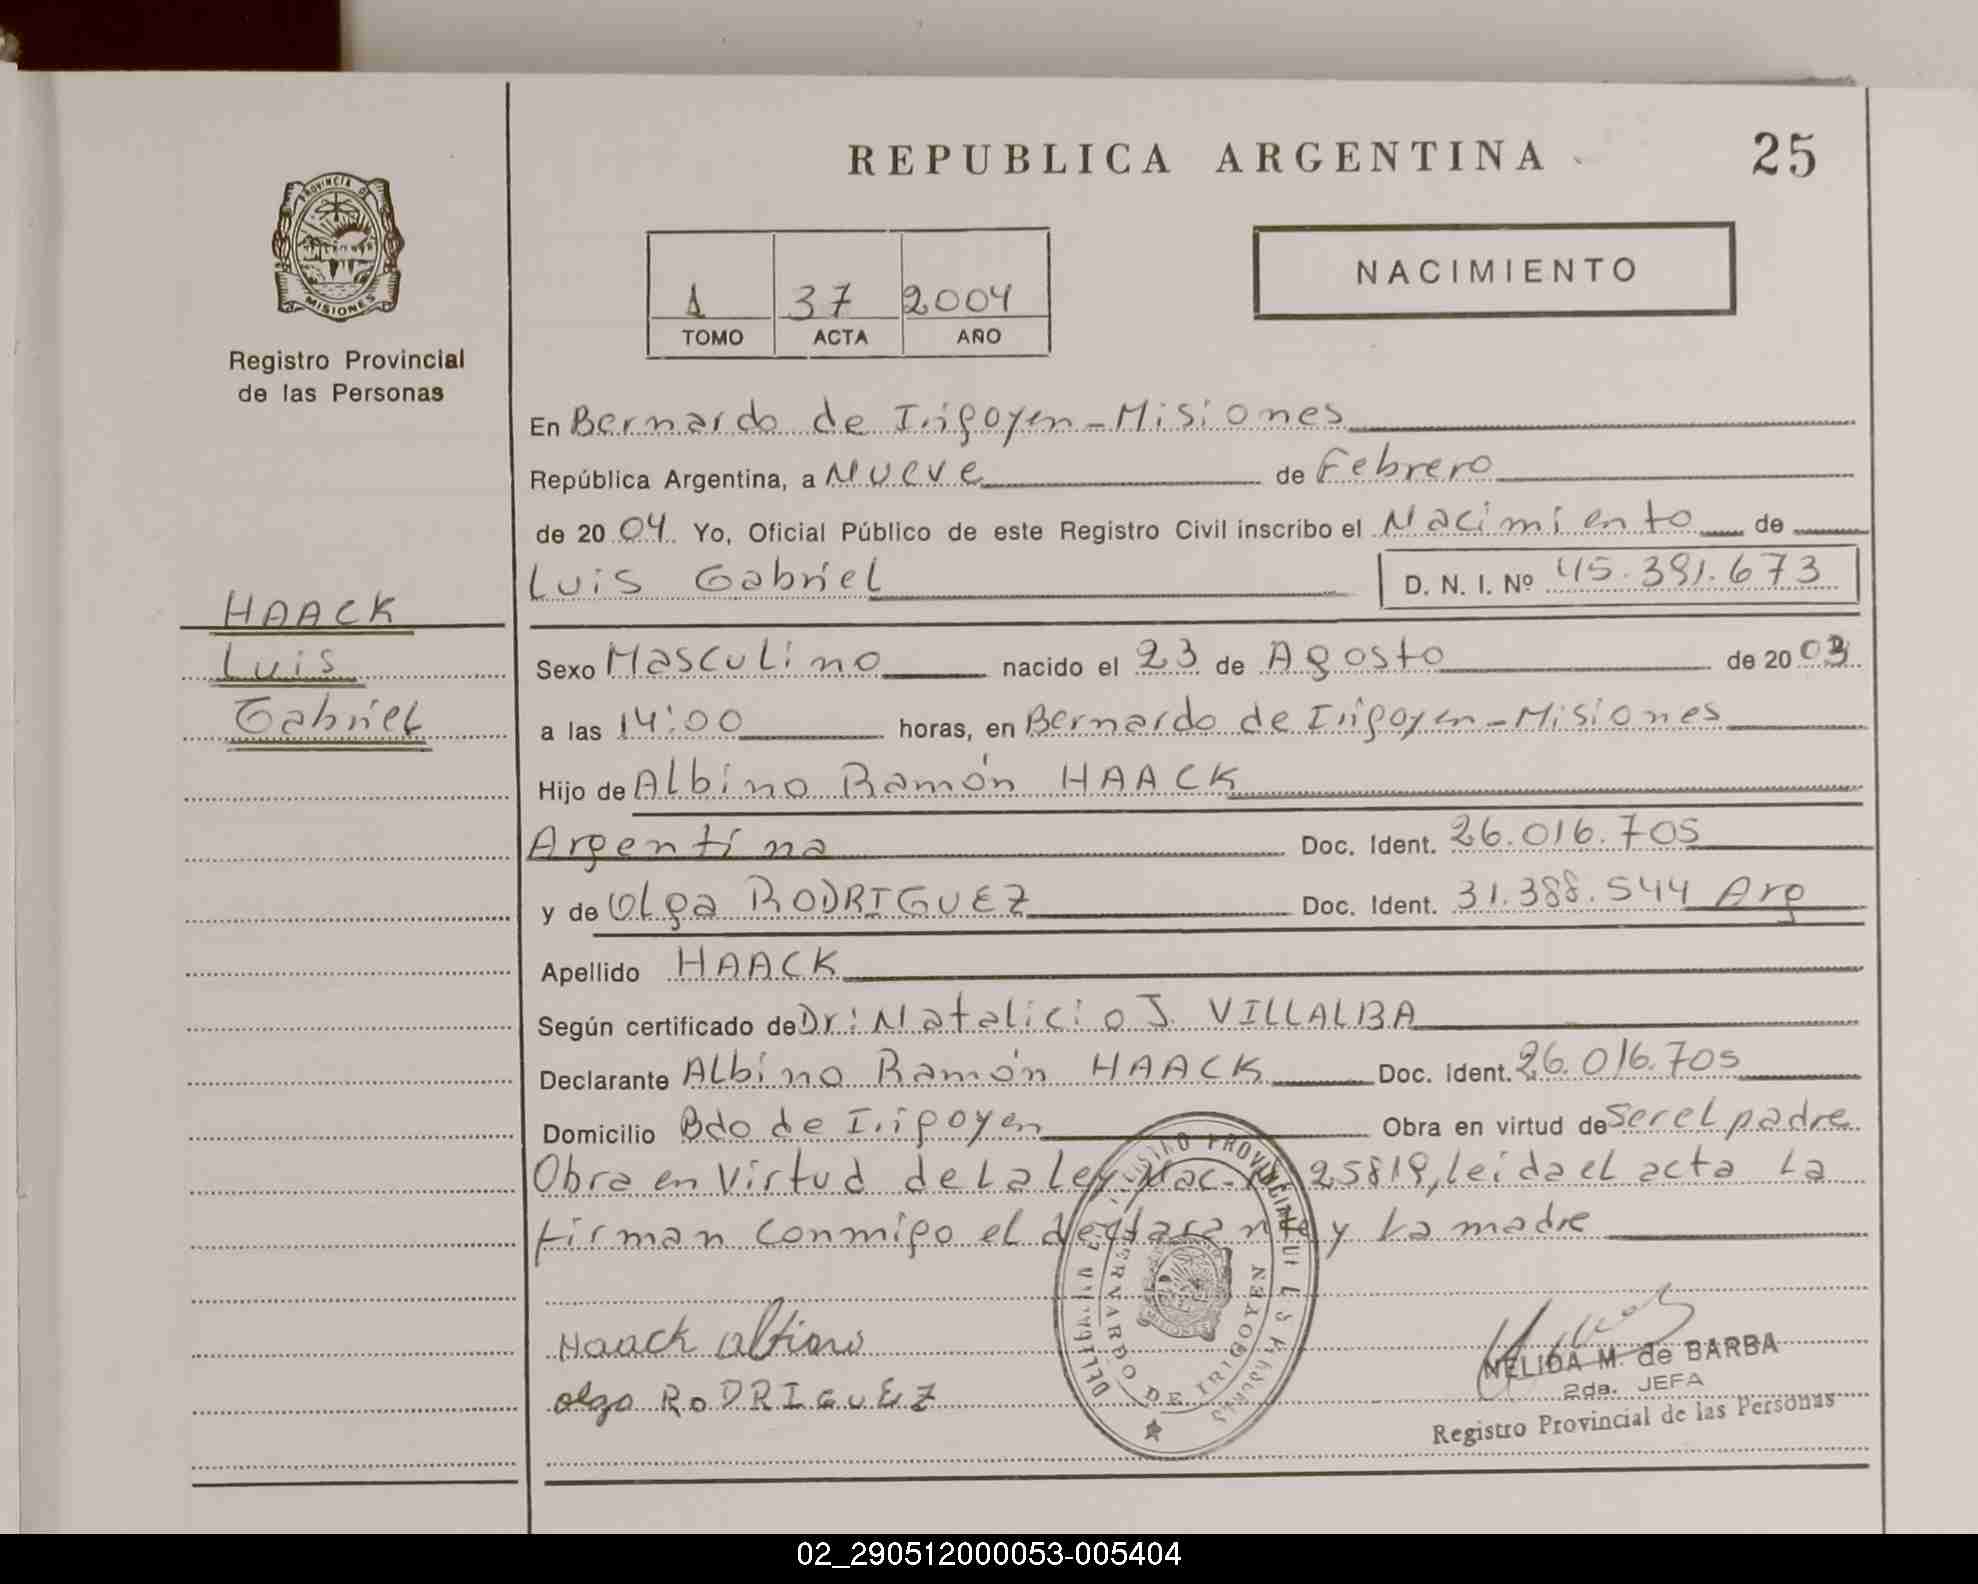 REPUBLICA ARGENTINA
25
PROVINCIA DE
MISIONES
Registro Provincial
de las Personas
1 37 2004
TOMO ACTA AÑO
NACIMIENTO
HAACK
Luis
Gabriel
En Bernardo de Irigoyen - Misiones
República Argentina, a Nueve de Febrero
de 2004. Yo, Oficial Público de este Registro Civil inscribo el Nacimiento de
Luis Gabriel D. N. I. Nº 45.391.673
Sexo Masculino nacido el 23 de Agosto de 2003
a las 14:00 horas, en Bernardo de Irigoyen - Misiones
Hijo de Albino Ramón HAACK
Argentina Doc. Ident. 26.016.705
y de Olga RODRIGUEZ Doc. Ident. 31.388.544 Arg
Apellido HAACK
Según certificado de Dr: Natalicio J. VILLALBA
Declarante Albino Ramón HAACK Doc. Ident. 26.016.705
Domicilio Bdo de Irigoyen Obra en virtud de Ser el padre
Obra en Virtud de La Ley Nac. 25819, leida el acta La
firman conmigo el declarante y La madre
Haack albino
olga RODRIGUEZ
REGISTRO PROVINCIAL DE LAS PERSONAS
BERNARDO DE IRIGOYEN
MISIONES
NELIDA M. de BARBA
2da. JEFA
Registro Provincial de las Personas
02_290512000053-005404